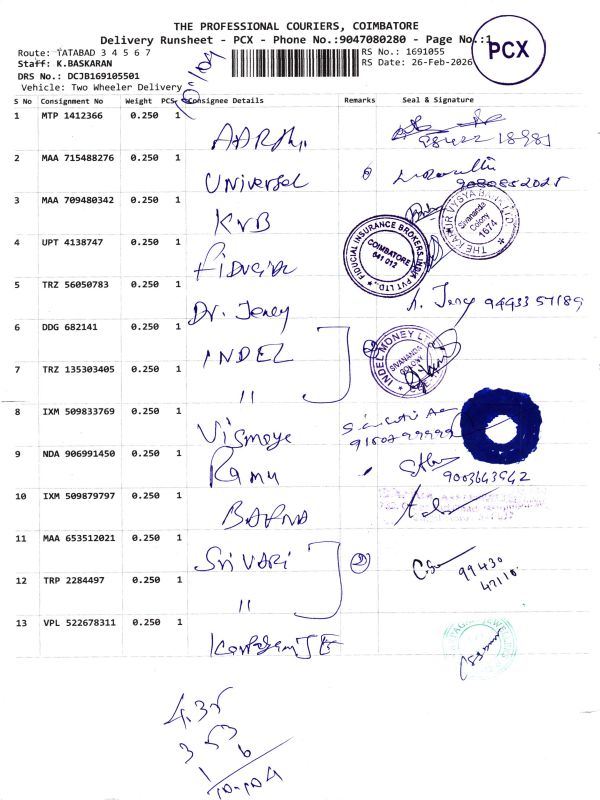 THE PROFESSIONAL COURIERS, COIMBATORE
Delivery Runsheet - PCX - Phone No.:9047080280 - Page No.:1
PCX
Route: TATABAD 3 4 5 6 7
RS No.: 1691055
Staff: K.BASKARAN
RS Date: 26-Feb-2026
DRS No.: DCJB169105501
Vehicle: Two Wheeler Delivery
10-104
S No Consignment No Weight PCS Consignee Details Remarks Seal & Signature
1 MTP 1412366 0.250 1
98422 18981
2 MAA 715488276 0.250 1 Universal
3 MAA 709480342 0.250 1 KVB
THE KARUR VYSYA BANK LTD Sivananda Colony 1674
4 UPT 4138747 0.250 1 Fiducial
FIDUCIAL INSURANCE BROKERS INDIA PVT LTD COIMBATORE 641 012
5 TRZ 56050783 0.250 1 Dr. Jeney
94433 57189
6 DDG 682141 0.250 1 INDEL
INDEL MONEY LTD SIVANANDA COLONY
7 TRZ 135303405 0.250 1 "
8 IXM 509833769 0.250 1 Vismaya
9 NDA 906991450 0.250 1 Ramu
9003643942
10 IXM 509879797 0.250 1 BAFNA
11 MAA 653512021 0.250 1 Sri VARI 2
99430
47110
12 TRP 2284497 0.250 1 "
13 VPL 522678311 0.250 1
4.35
3 53
1 6
10-104